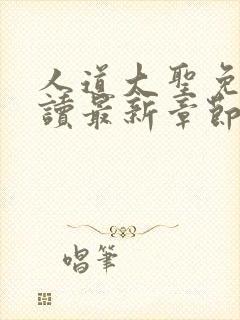 人道大聖免
讀最新章節
唱筆